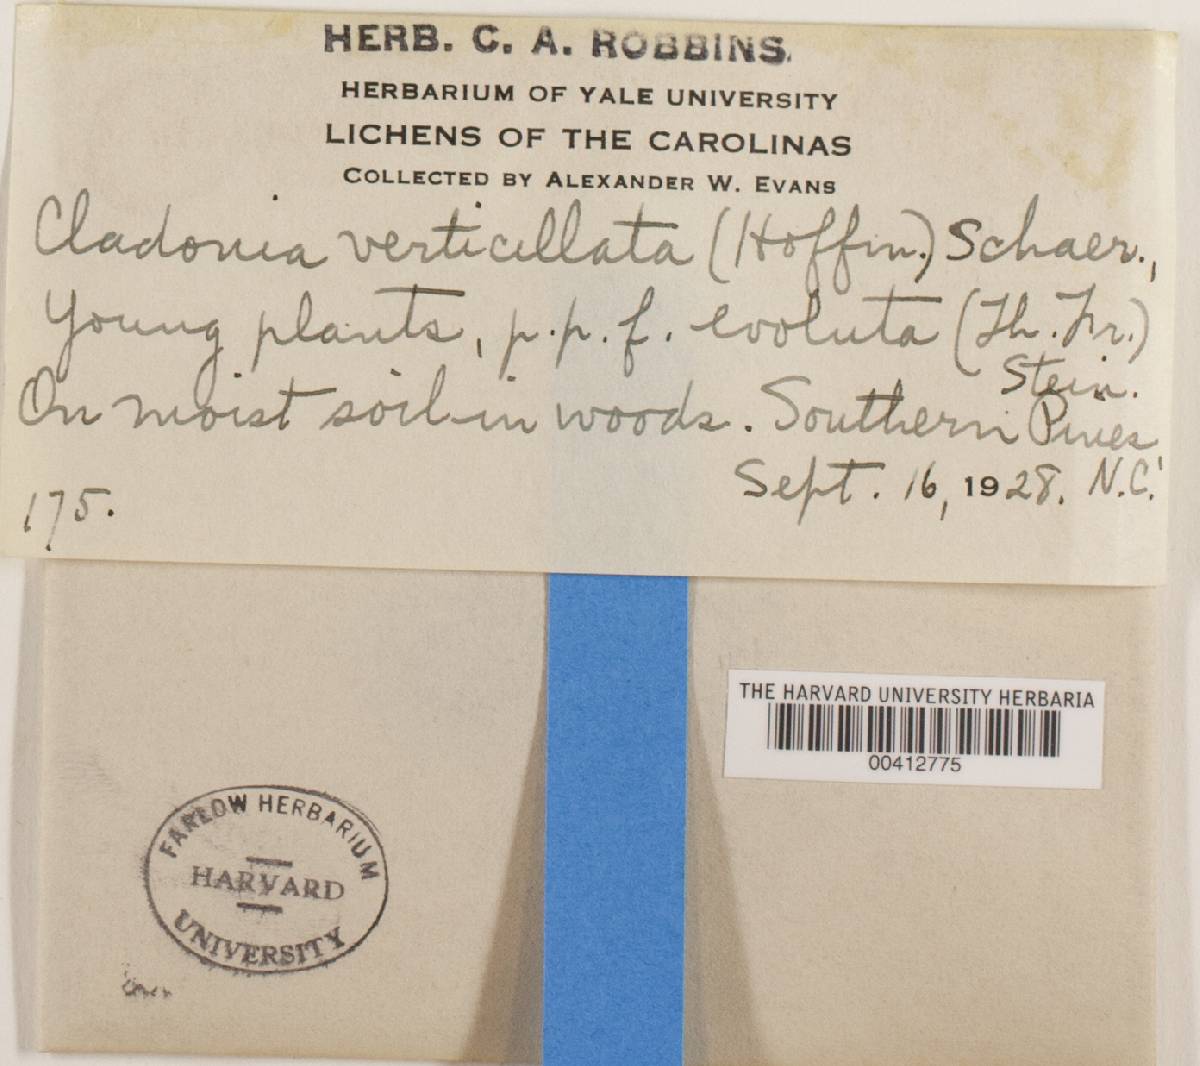 HERB. C. A. ROBBINS.
HERBARIUM OF YALE UNIVERSITY
LICHENS OF THE CAROLINAS
COLLECTED BY ALEXANDER W. EVANS
Cladonia verticillata (Hoffm.) Schaer.,
Young plants, p.p. f. evoluta (Th. Fr.)
Stein.
On moist soil in woods. Southern Pines
Sept. 16, 1928. N.C.
175.
THE HARVARD UNIVERSITY HERBARIA
00412775
FARLOW HERBARIUM
HARVARD
UNIVERSITY